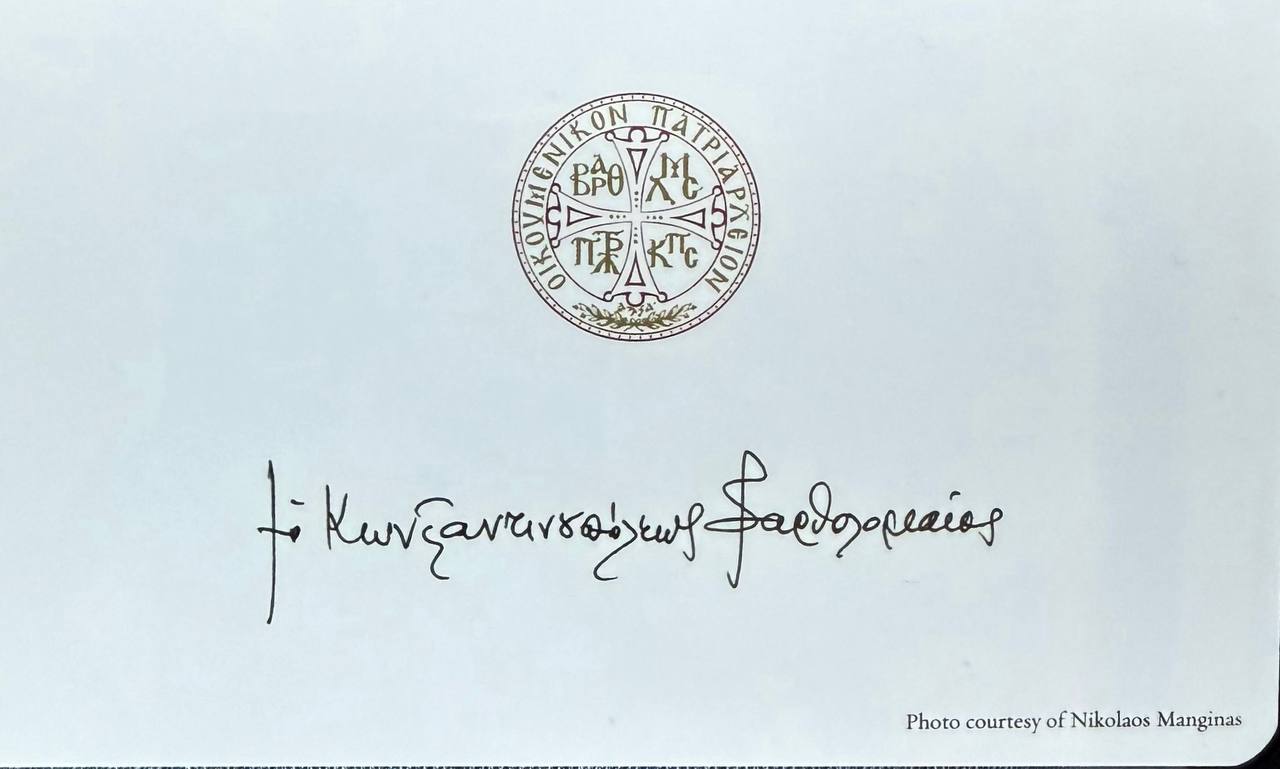 ΟΙΚΟΥΜΕΝΙΚΟΝ ΠΑΤΡΙΑΡΧΕΙΟΝ
† ὁ Κωνϛαντινȣπόλεως Βαρθολομαίος
Photo courtesy of Nikolaos Manginas